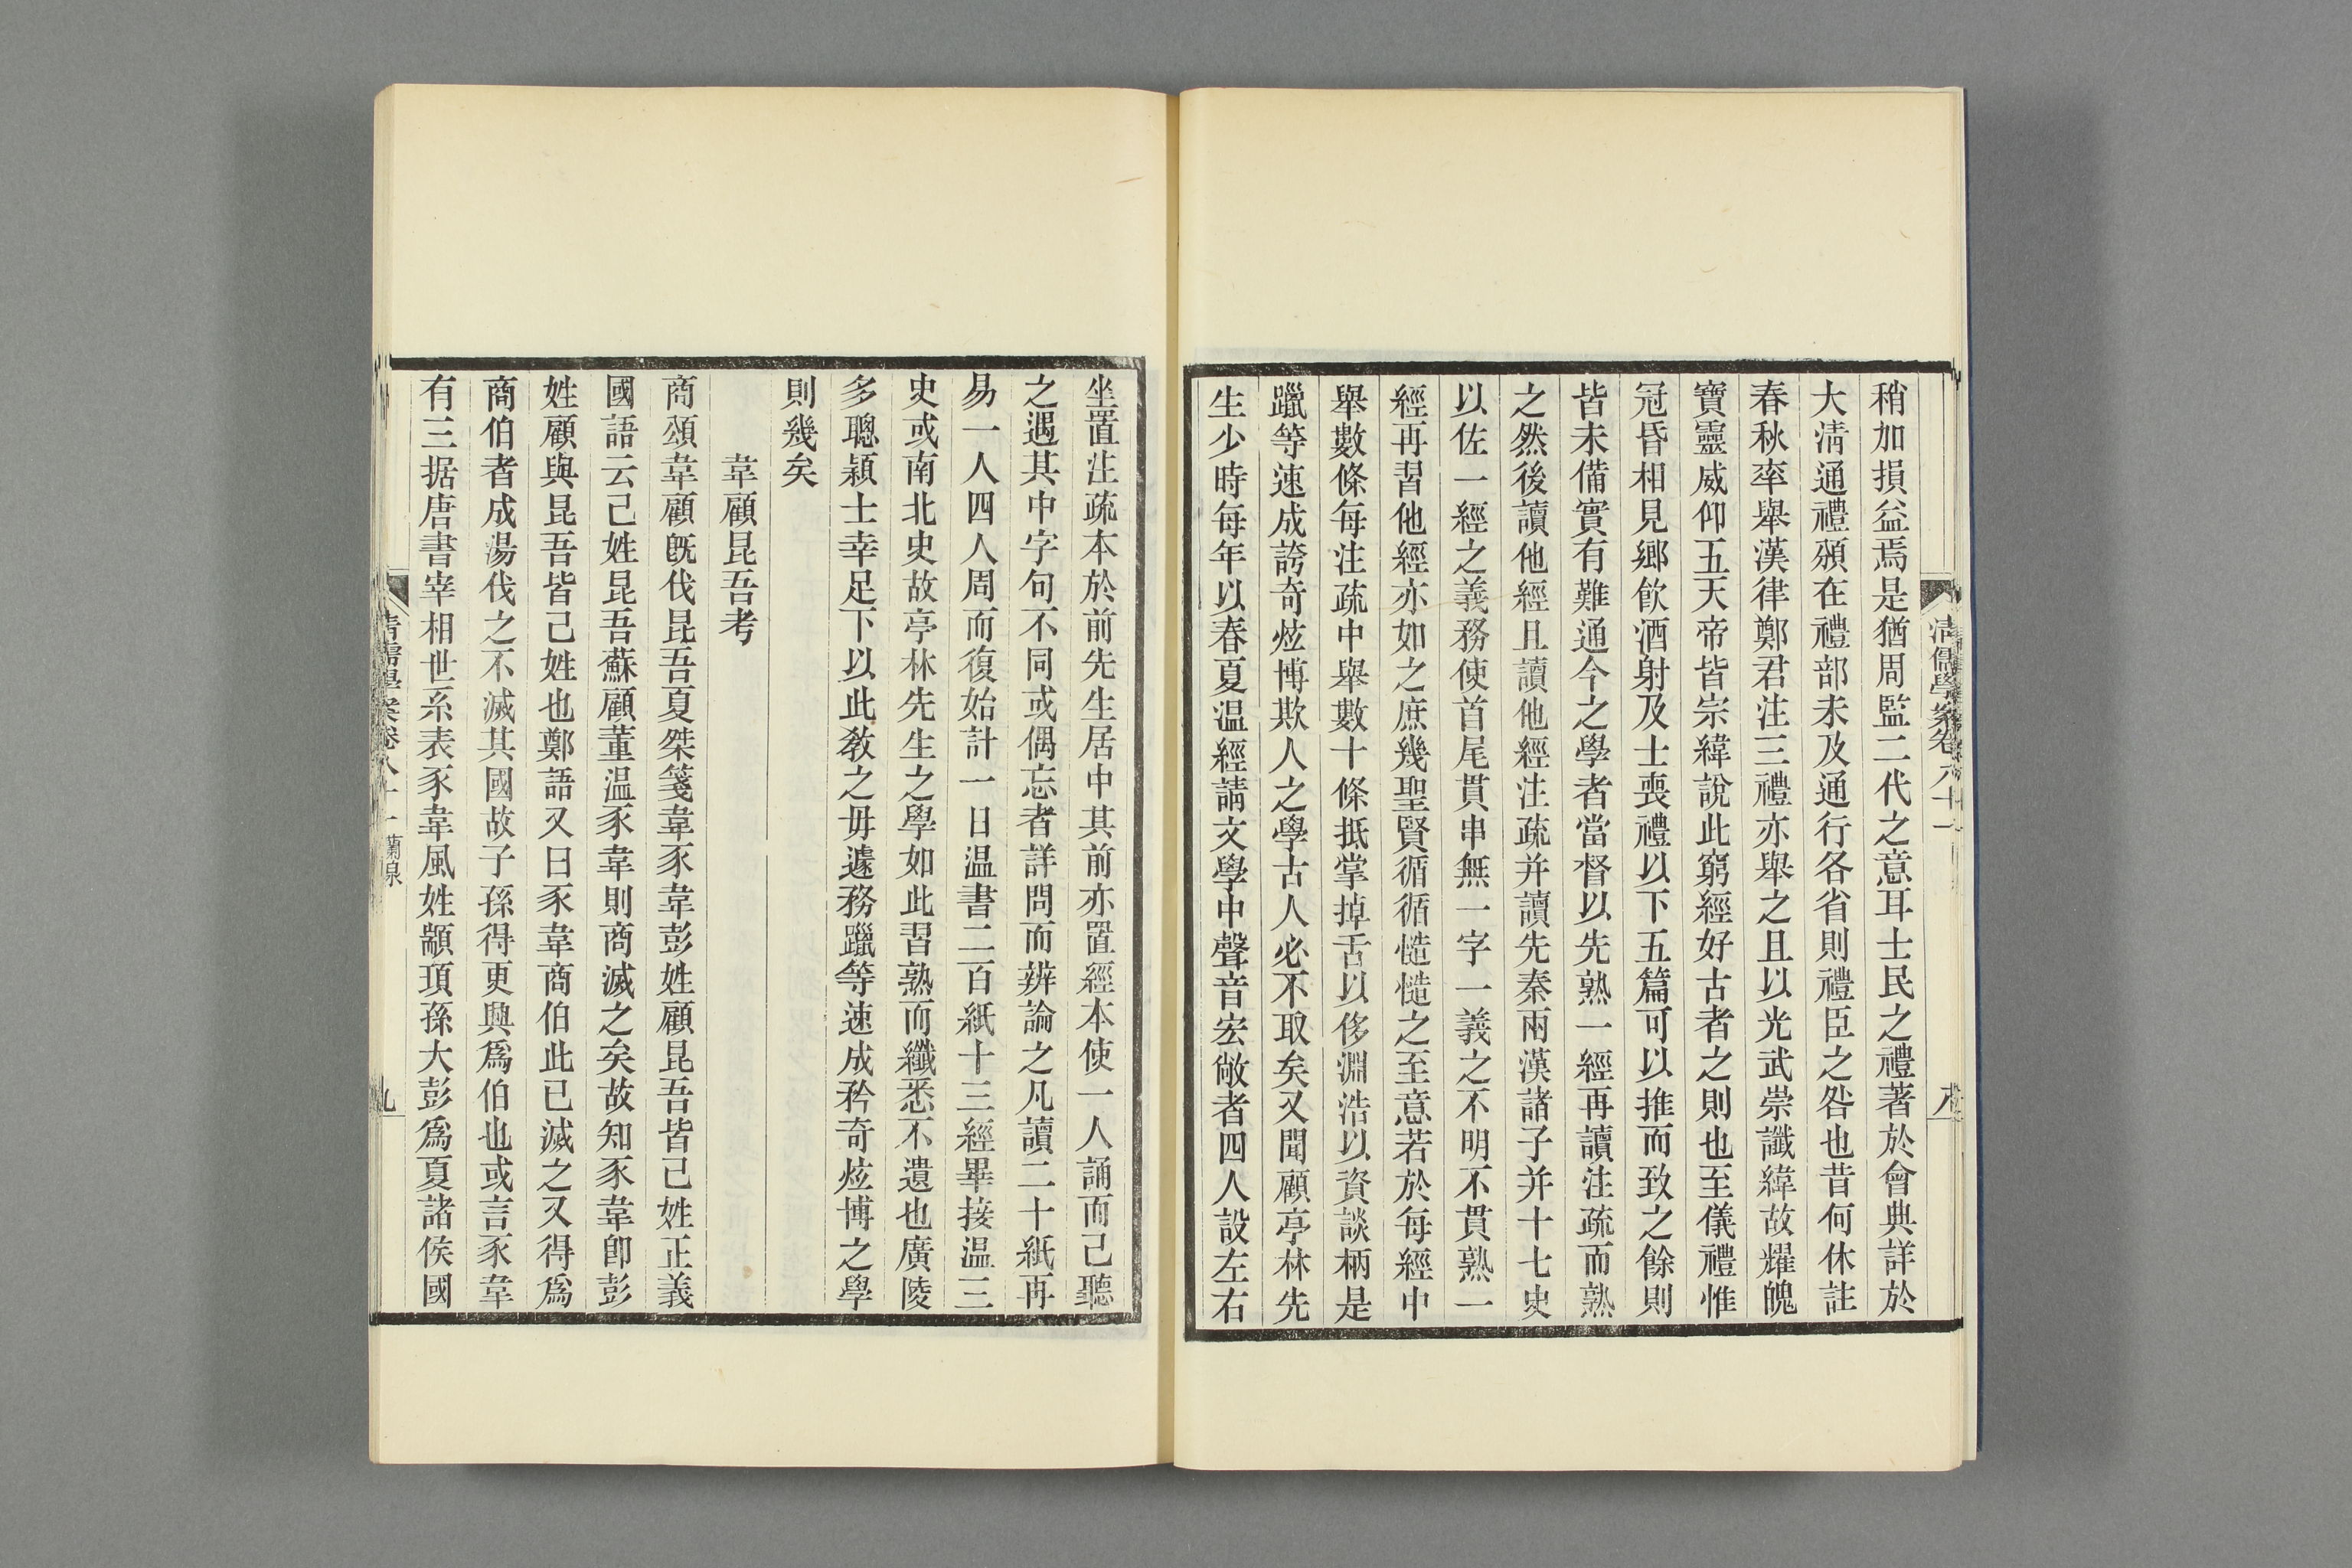 稍加損益焉是猶周監二代之意耳士民之禮著於會典詳於
大淸通禮頒在禮部未及通行各省則禮臣之咎也昔何休註
春秋率舉漢律鄭君注三禮亦舉之且以光武崇讖緯故耀魄
寶靈威仰五天帝皆宗緯說此窮經好古者之則也至儀禮惟
冠昏相見鄉飮酒射及士喪禮以下五篇可以推而致之餘則
皆未備實有難通今之學者當督以先熟一經再讀注疏而熟
之然後讀他經且讀他經注疏并讀先秦兩漢諸子并十七史
以佐一經之義務使首尾貫串無一字一義之不明不貫熟一
經再習他經亦如之庶幾聖賢循循慥慥之至意若於每經中
舉數條每注疏中舉數十條抵掌掉舌以侈淵浩以資談柄是
躐等速成誇奇炫博欺人之學古人必不取矣又聞顧亭林先
生少時每年以春夏温經請文學中聲音宏敞者四人設左右
淸儒學案卷八十一
坐置注疏本於前先生居中其前亦置經本使一人誦而己聽
之遇其中字句不同或偶忘者詳問而辨論之凡讀二十紙再
易一人四人周而復始計一日温書二百紙十三經畢接温三
史或南北史故亭林先生之學如此習熟而纖悉不遺也廣陵
多聰穎士幸足下以此敎之毋遽務躐等速成矜奇炫博之學
則幾矣
韋顧昆吾考
商頌韋顧旣伐昆吾夏桀箋韋豕韋彭姓顧昆吾皆己姓正義
國語云己姓昆吾蘇顧董温豕韋則商滅之矣故知豕韋卽彭
姓顧與昆吾皆己姓也鄭語又曰豕韋商伯此已滅之又得爲
商伯者成湯伐之不滅其國故子孫得更興爲伯也或言豕韋
有三据唐書宰相世系表豕韋風姓顓頊孫大彭爲夏諸侯國
淸儒學案卷八十一 蘭泉
九